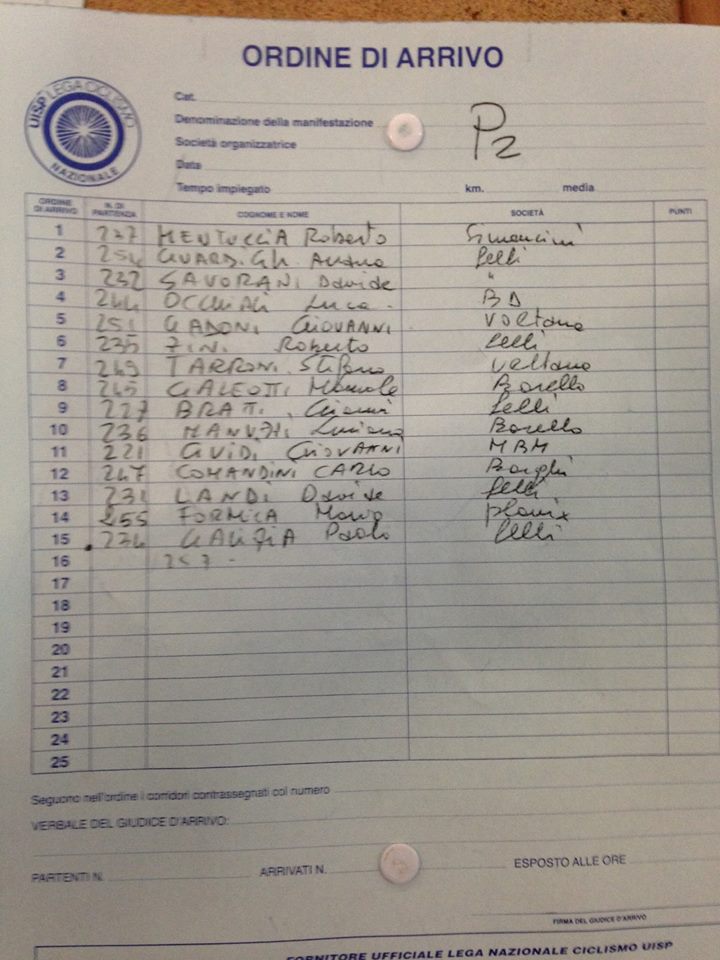 ORDINE DI ARRIVO
UISP LEGA CICLISMO
NAZIONALE
Cat.
Denominazione della manifestazione
P2
Società organizzatrice
Data
Tempo impiegato km. media
ORDINE DI ARRIVO N. DI PARTENZA COGNOME E NOME SOCIETÀ PUNTI
1 237 MENTUCCIA Roberto Simoncini
2 254 Lelli
3 232 SAVORANI Davide "
4 244 OCCHIALI Luca BD
5 251 GADONI GIOVANNI Voltana
6 235 FINI Roberto Lelli
7 249 TARRONI Stefano Voltana
8 245 GALEOTTI Borello
9 227 BRATTI Gianni Lelli
10 236 Luciano Borello
11 221 GUIDI GIOVANNI MBM
12 247 COMANDINI CARLO Borghi
13 231 LANDI Davide Lelli
14 255 FORMICA Mario
15 234 GALIZIA Paolo Lelli
16 257 -
17
18
19
20
21
22
23
24
25
Seguono nell'ordine i corridori contrassegnati col numero
VERBALE DEL GIUDICE D'ARRIVO:
PARTENTI N. ARRIVATI N. ESPOSTO ALLE ORE
FIRMA DEL GIUDICE D'ARRIVO
FORNITORE UFFICIALE LEGA NAZIONALE CICLISMO UISP